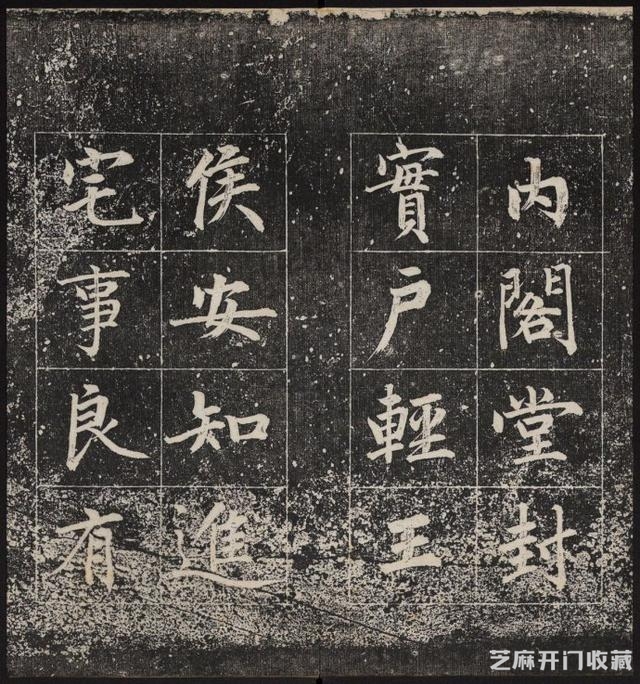 内閣堂封
實户輕王
侯安知進
宅事良有
芝麻开门收藏